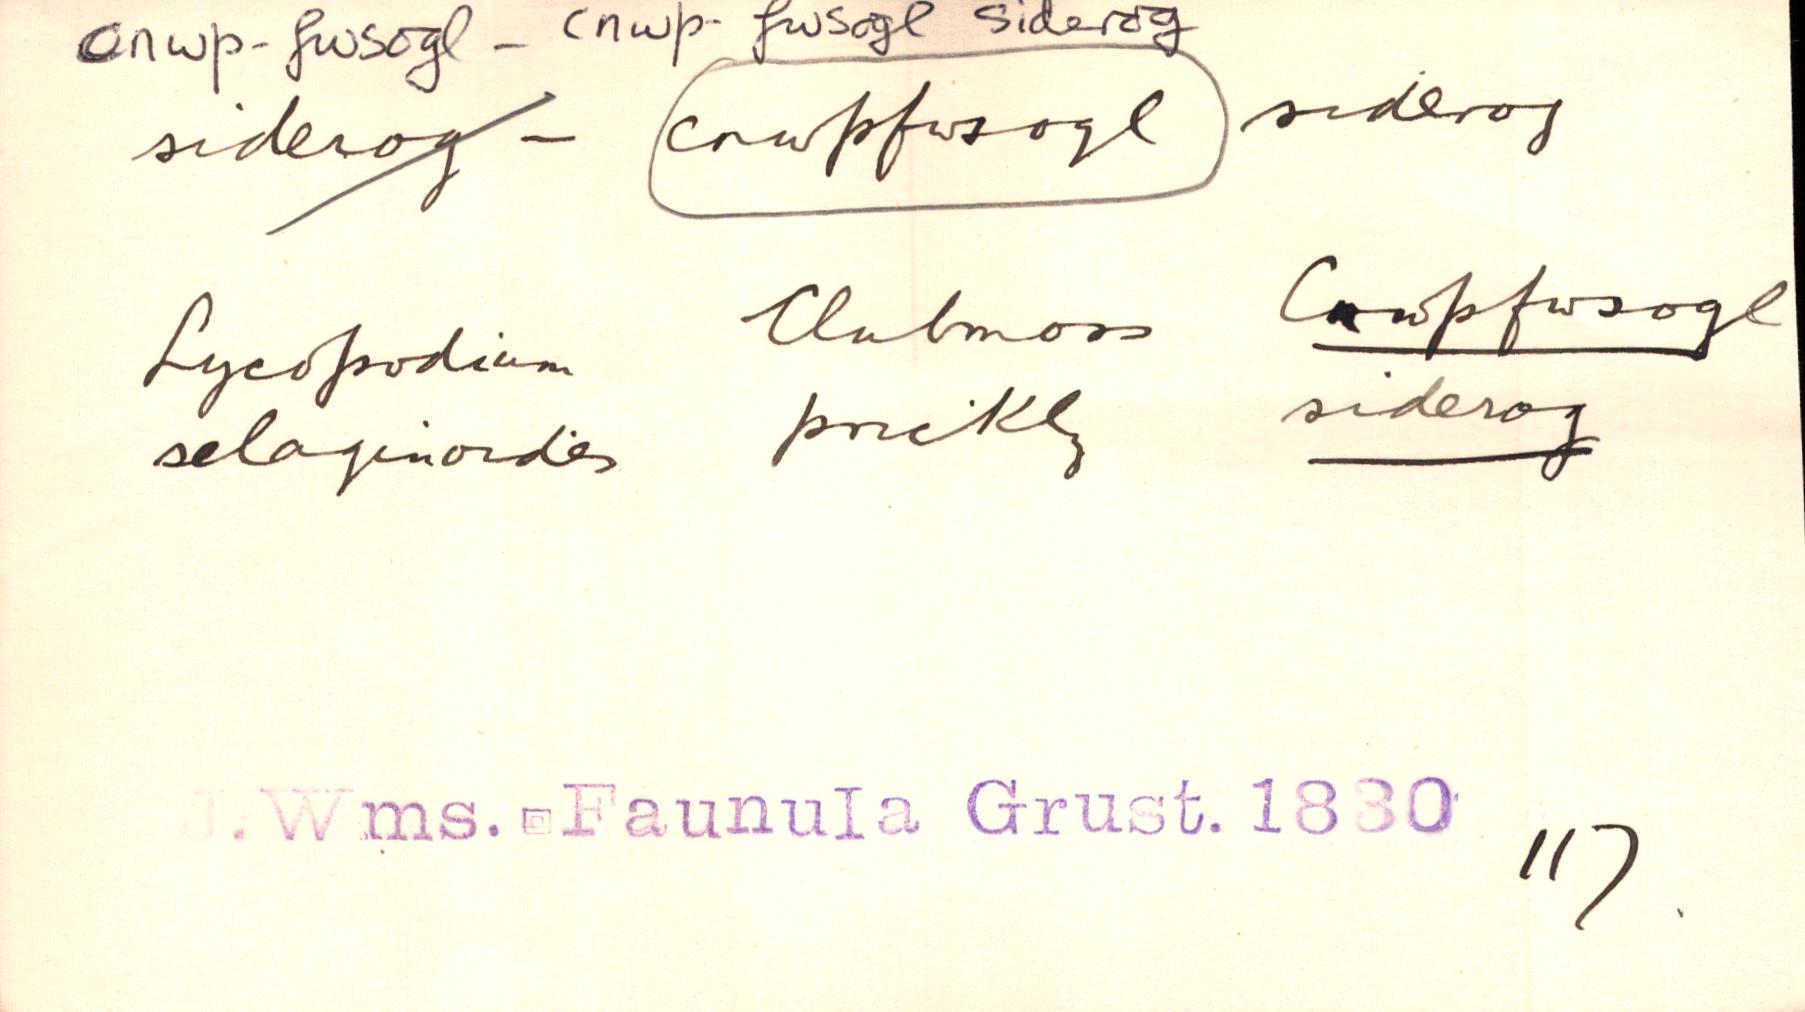 cnwp-fwsogl - cnwp-fwsogl siderog
siderog - cnwpfwsogl siderog
Lycopodium Clubmoss Cnwpfwsogl
selaginoides prickly siderog
J.Wms. Faunula Grust. 1830
117.